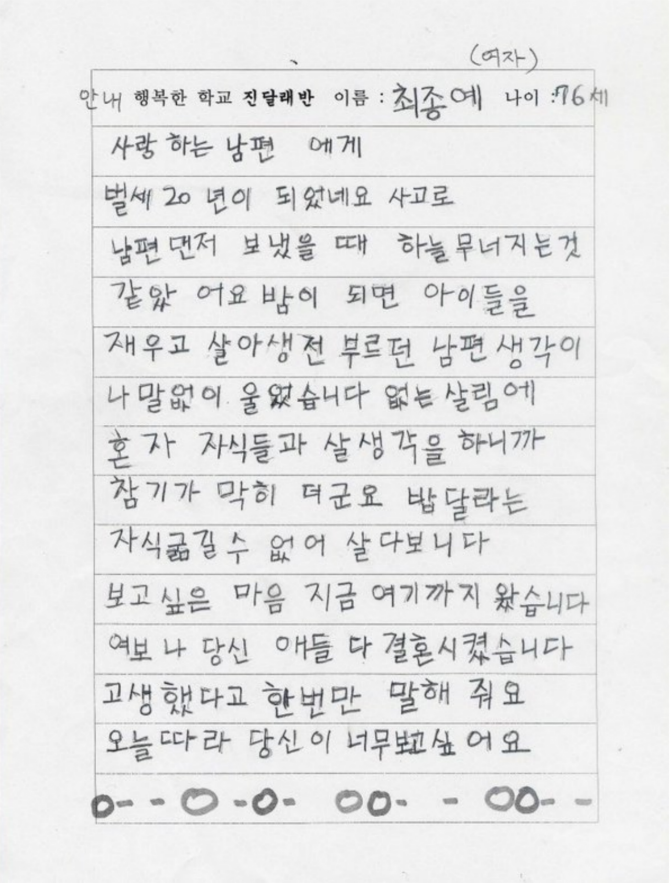 (여자)
안내 행복한 학교 진달래반 이름 : 최종예 나이 : 76세
사랑 하는 남편 에게
벌세 20 년이 되었네요 사고로
남편 먼저 보냈을 때 하늘무너지는것
같았 어요 밤이 되면 아이들을
재우고 살아생전 부르던 남편 생각이
나 말없이 울었습니다 없는 살림에
혼 자 자식들과 살생각을 하니까
참기가 막히 더군요 밥달라는
자식굶길수 없어 살 다보니다
보고싶은 마음 지금 여기까지 왔습니다
여보 나 당신 애들 다 결혼시켰습니다
고생했다고 한번만 말해 줘요
오늘따라 당신이 너무보고싶 어요